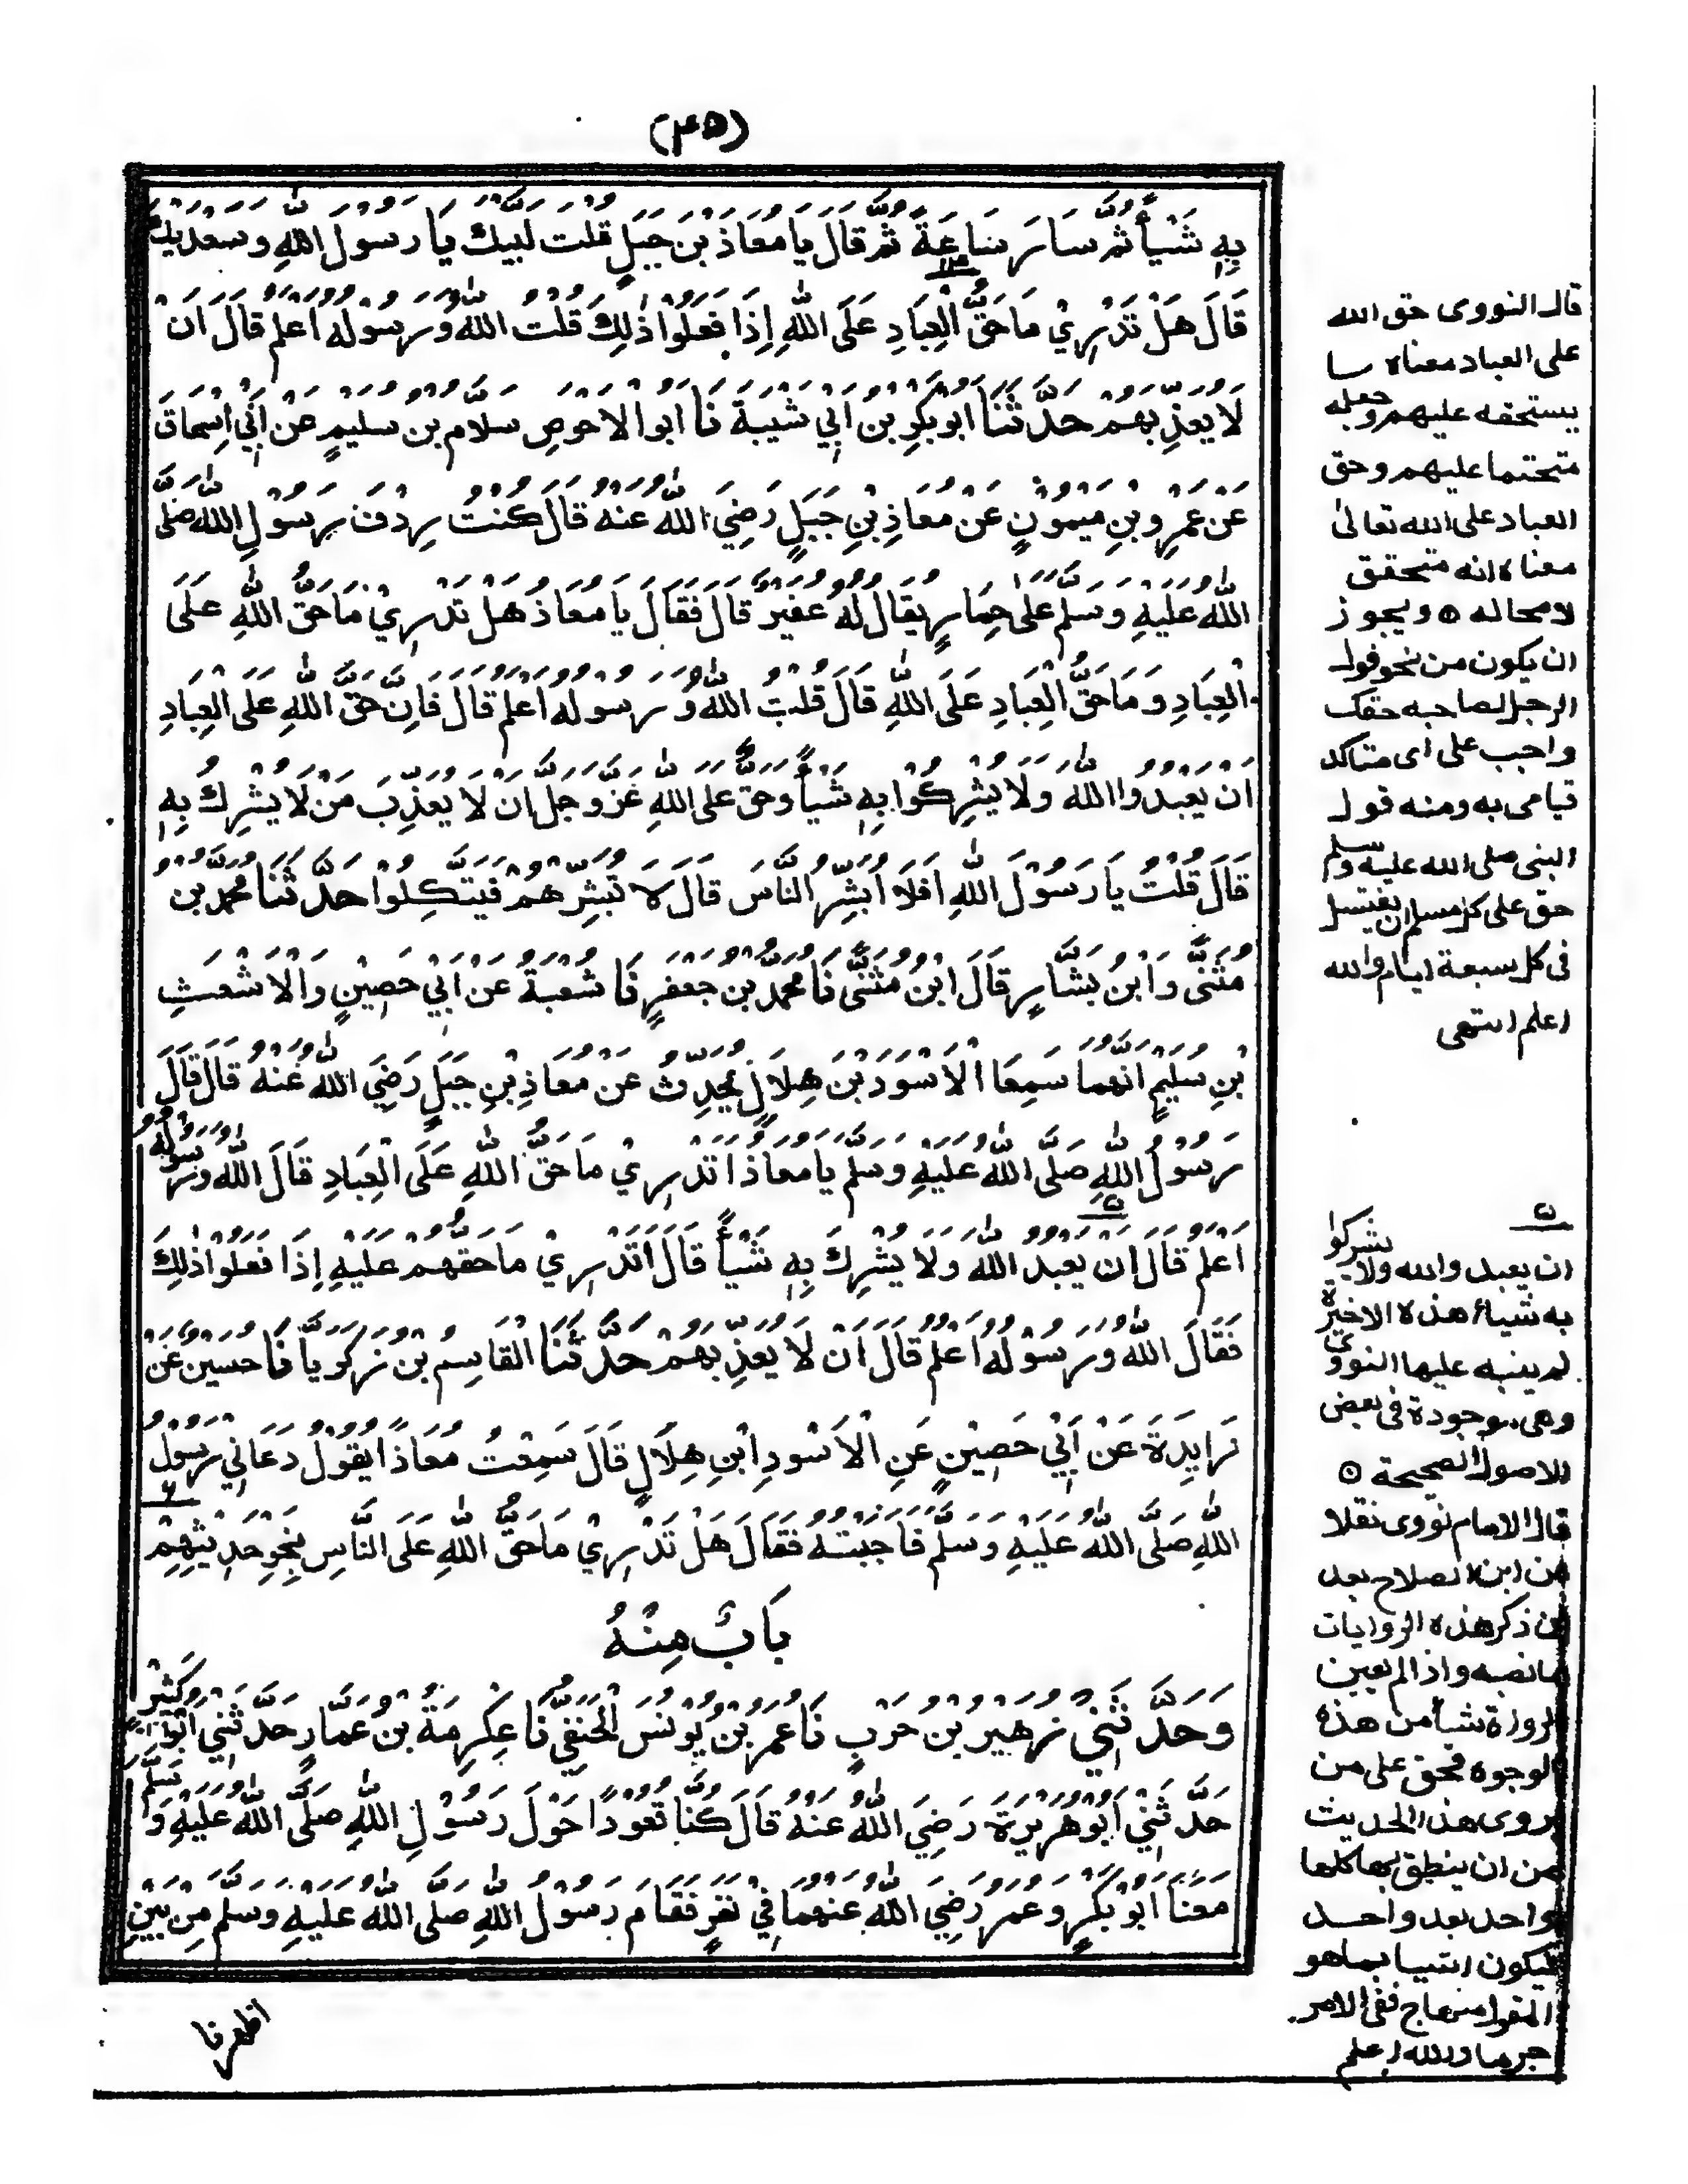 (٤٥)
بِهِ شَيْأً ثُمَّ سَارَ سَاعَةً ثُمَّ قَالَ يَا مُعَاذُ بْنَ جَبَلٍ قُلْتُ لَبَّيْكَ يَا رَسُوْلَ اللّٰهِ وَسَعْدَيْكَ
قَالَ هَلْ تَدْرِيْ مَا حَقُّ الْعِبَادِ عَلَى اللّٰهِ إِذَا فَعَلُوْا ذٰلِكَ قُلْتُ اللّٰهُ وَرَسُوْلُهُ اَعْلَمُ قَالَ اَنْ
لَا يُعَذِّبَهُمْ حَدَّثَنَا اَبُوْ بَكْرِ بْنُ اَبِيْ شَيْبَةَ نَا اَبُو الْاَحْوَصِ سَلَّامُ بْنُ سُلَيْمٍ عَنْ اَبِيْ اِسْحَاقَ
عَنْ عَمْرِو بْنِ مَيْمُوْنٍ عَنْ مُعَاذِ بْنِ جَبَلٍ رَضِيَ اللّٰهُ عَنْهُ قَالَ كُنْتُ رِدْفَ رَسُوْلِ اللّٰهِ صَلَّى
اللّٰهُ عَلَيْهِ وَسَلَّمَ عَلٰى حِمَارٍ يُقَالُ لَهُ عُفَيْرٌ قَالَ فَقَالَ يَا مُعَاذُ هَلْ تَدْرِيْ مَا حَقُّ اللّٰهِ عَلَى
الْعِبَادِ وَمَا حَقُّ الْعِبَادِ عَلَى اللّٰهِ قَالَ قُلْتُ اللّٰهُ وَرَسُوْلُهُ اَعْلَمُ قَالَ فَاِنَّ حَقَّ اللّٰهِ عَلَى الْعِبَادِ
اَنْ يَعْبُدُوا اللّٰهَ وَلَا يُشْرِكُوْا بِهِ شَيْأً وَحَقُّ عَلَى اللّٰهِ عَزَّ وَجَلَّ اَنْ لَا يُعَذِّبَ مَنْ لَا يُشْرِكُ بِهِ
قَالَ قُلْتُ يَا رَسُوْلَ اللّٰهِ اَفَلَا اُبَشِّرُ النَّاسَ قَالَ لَا تُبَشِّرْهُمْ فَيَتَّكِلُوْا حَدَّثَنَا مُحَمَّدُ بْنُ
مُثَنَّى وَابْنُ بَشَّارٍ قَالَ ابْنُ مُثَنَّى نَا مُحَمَّدُ بْنُ جَعْفَرٍ نَا شُعْبَةُ عَنْ اَبِيْ حَصِيْنٍ وَالْاَشْعَثِ
بْنِ سُلَيْمٍ اَنَّهُمَا سَمِعَا الْاَسْوَدَ بْنَ هِلَالٍ يُحَدِّثُ عَنْ مُعَاذِ بْنِ جَبَلٍ رَضِيَ اللّٰهُ عَنْهُ قَالَ قَالَ
رَسُوْلُ اللّٰهِ صَلَّى اللّٰهُ عَلَيْهِ وَسَلَّمَ يَا مُعَاذُ اَتَدْرِيْ مَا حَقُّ اللّٰهِ عَلَى الْعِبَادِ قَالَ اللّٰهُ وَرَسُوْلُهُ
اَعْلَمُ قَالَ اَنْ يُعْبَدَ اللّٰهُ وَلَا يُشْرَكَ بِهِ شَيْأً قَالَ اَتَدْرِيْ مَا حَقُّهُمْ عَلَيْهِ إِذَا فَعَلُوْا ذٰلِكَ
فَقَالَ اللّٰهُ وَرَسُوْلُهُ اَعْلَمُ قَالَ اَنْ لَا يُعَذِّبَهُمْ حَدَّثَنَا الْقَاسِمُ بْنُ زَكَرِيَّا نَا حُسَيْنٌ عَنْ
زَايِدَةَ عَنْ اَبِيْ حَصِيْنٍ عَنِ الْاَسْوَدِ ابْنِ هِلَالٍ قَالَ سَمِعْتُ مُعَاذًا يَقُوْلُ دَعَانِيْ رَسُوْلُ
اللّٰهِ صَلَّى اللّٰهُ عَلَيْهِ وَسَلَّمَ فَاَجَبْتُهُ فَقَالَ هَلْ تَدْرِيْ مَا حَقُّ اللّٰهِ عَلَى النَّاسِ نَحْوَ حَدِيْثِهِمْ
بَابٌ مِنْهُ
وَحَدَّثَنِيْ زُهَيْرُ بْنُ حَرْبٍ نَا عُمَرُ بْنُ يُوْنُسَ الْحَنَفِيُّ نَا عِكْرِمَةُ بْنُ عَمَّارٍ حَدَّثَنِيْ اَبُوْ كَثِيْرٍ
حَدَّثَنِيْ اَبُوْ هُرَيْرَةَ رَضِيَ اللّٰهُ عَنْهُ قَالَ كُنَّا قُعُوْدًا حَوْلَ رَسُوْلِ اللّٰهِ صَلَّى اللّٰهُ عَلَيْهِ وَسَلَّمَ
مَعَنَا اَبُوْ بَكْرٍ وَعُمَرُ رَضِيَ اللّٰهُ عَنْهُمَا فِيْ نَفَرٍ فَقَامَ رَسُوْلُ اللّٰهِ صَلَّى اللّٰهُ عَلَيْهِ وَسَلَّمَ مِنْ بَيْنِ
اظهرنا
قال النووى حق الله
على العباد معناه ما
يستحقه عليهم وجعله
متحتما عليهم وحق
العباد على الله تعالىٰ
معناه انه متحقق
لا محاله ٥ ويجوز
ان يكون من نحو قول
الرجل لصاحبه حقك
واجب على اى متاكد
قيامى به ومنه قول
النبى صلى الله عليه وسلم
حق على كل مسلم ان يغتسل
فى كل سبعة ايام والله
اعلم انتهى
ان يعبدوا الله ولا يشركوا
به شياء هذه الاخيرة
لم ينبه عليها النووي
وهى موجودة فى بعض
الاصول الصحيحة ٥
قال الامام نووى نقلا
من ابن الصلاح بعد
من ذكر هذه الروايات
ما نصه واذا لم يعين
الرواة شيأ من هذه
الوجوه فحق على من
يروى هذا الحديث
من ان ينطق بها كلها
واحد بعد واحد
فيكون اتيا بما هو
المقول منهاج ففى الامر
جرما والله اعلم